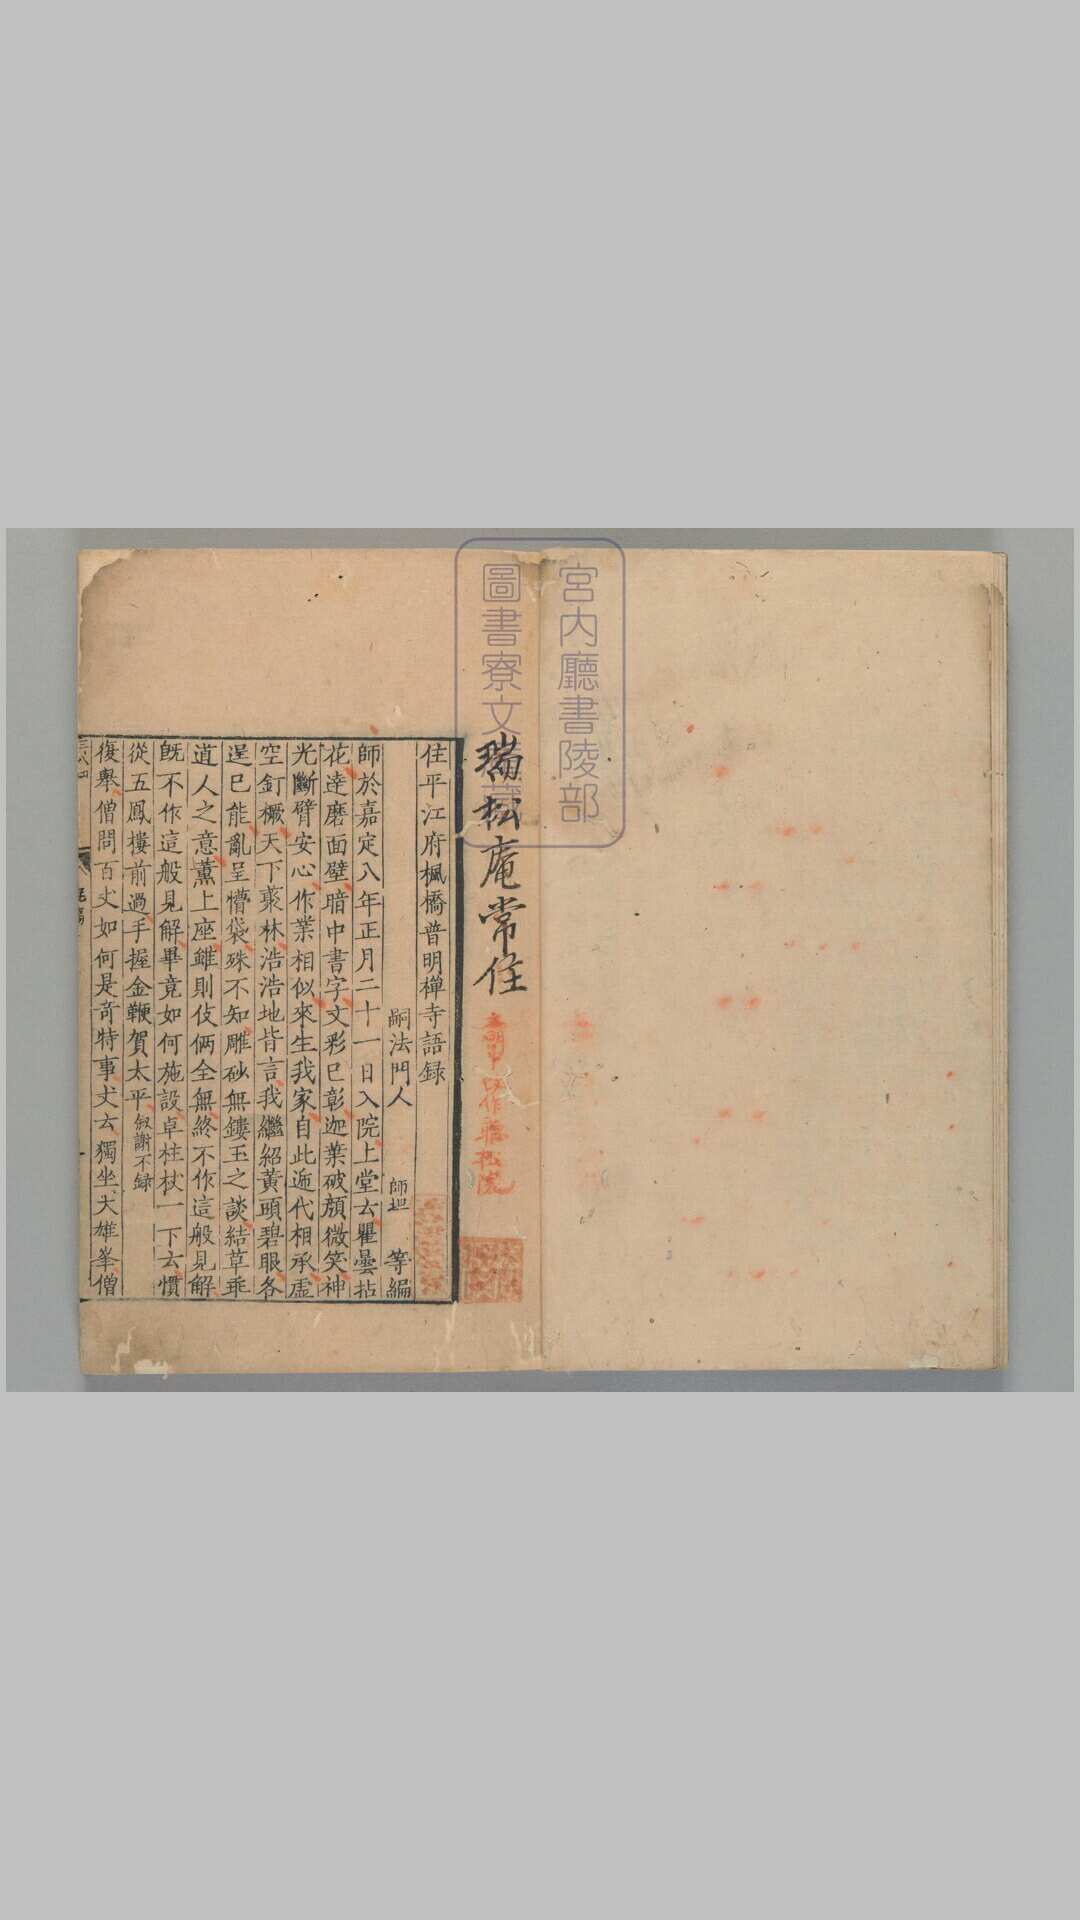 宮內廳書陵部
圖書寮文庫藏
瑞松庵常住
住平江府楓橋普明禪寺語録
嗣法門人 師坦 等編
師於嘉定八年正月二十一日入院上堂云瞿曇拈
花達磨面壁暗中書字文彩已彰迦葉破顏微笑神
光斷臂安心作業相似來生我家自此遞代相承虛
空釘橛天下叢林浩浩地皆言我繼紹黃頭碧眼各
逞已能亂呈懵袋殊不知雕砂無鏤玉之談結草乖
道人之意薰上座雖則伎倆全無終不作這般見解
旣不作這般見解畢竟如何施設卓柱杖一下云慣
從五鳳樓前過手握金鞭賀太平叙謝不録
復舉僧問百丈如何是竒特事丈云獨坐大雄峯僧